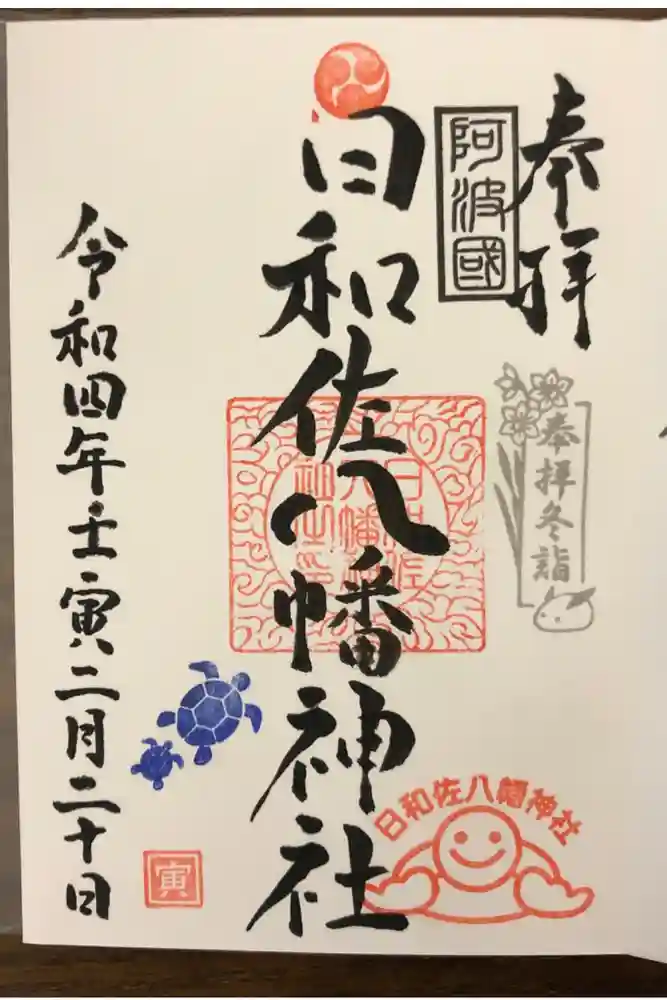 奉拝
阿波國
奉拝冬詣
日和佐八幡神社
日和佐八幡神社
令和四年壬寅二月二十日
寅